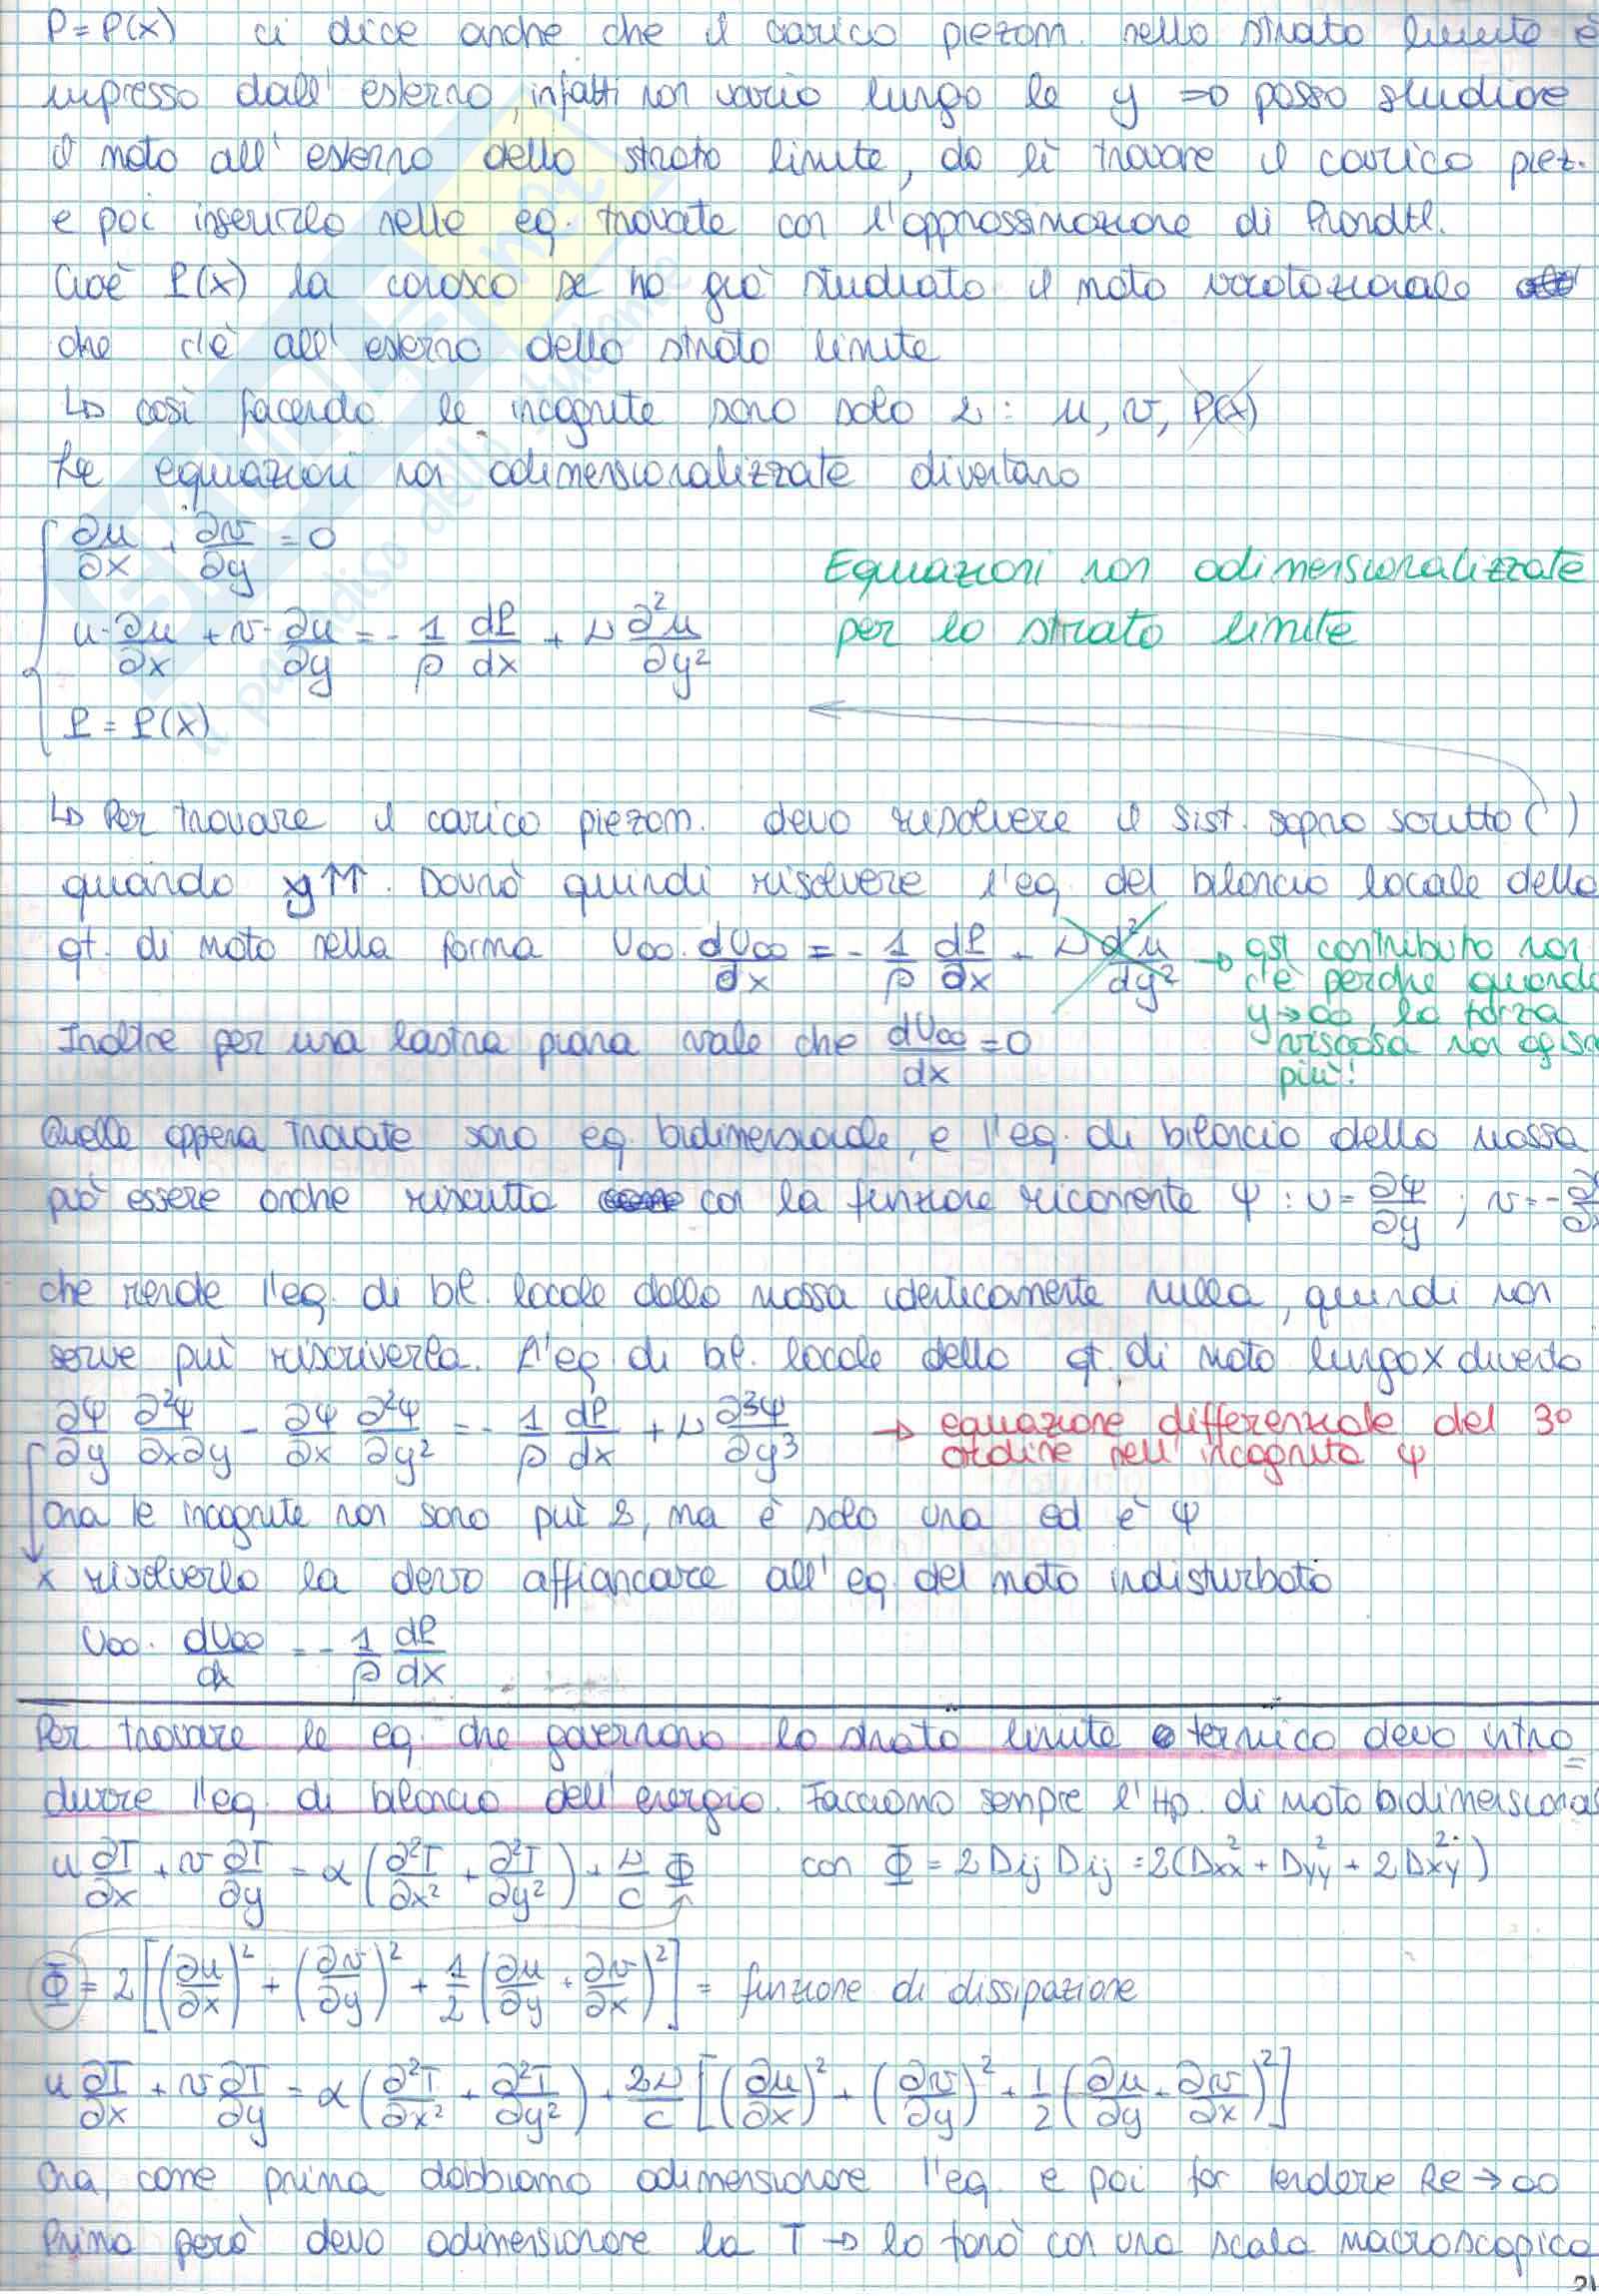 P = P(x) ci dice anche che il carico piezom. nello strato limite è
impresso dall'esterno, infatti non varia lungo le y ⇒ posso studiare
il moto all'esterno dello strato limite, da lì trovare il carico piez.
e poi inserirlo nelle eq. trovate con l'approssimazione di Prandtl.
Cioè P(x) la conosco se ho già studiato il moto irrotazionale
che c'è all'esterno dello strato limite
↳ così facendo le incognite sono solo 2: u, v, P(x)
Le equazioni non adimensionalizzate diventano
∂u/∂x + ∂v/∂y = 0
Equazioni non adimensionalizzate
u·∂u/∂x + v·∂u/∂y = -1/ρ dP/dx + ν ∂²u/∂y²
per lo strato limite
P = P(x)
↳ Per trovare il carico piezom. devo risolvere il sist. sopra scritto ( )
quando y↑↑. Dovrò quindi risolvere l'eq. del bilancio locale della
qt. di moto nella forma U∞·dU∞/dx = -1/ρ dP/dx + ν d²u/dy² → qst contributo non
c'è perché quando
y→∞ la forza
Inoltre per una lastra piana vale che dU∞/dx = 0
viscosa non agisce
più!
Quelle appena trovate sono eq. bidimensionale, e l'eq. di bilancio della massa
può essere anche riscritta con la funzione ricorrente ψ : U = ∂ψ/∂y ; v = -∂
che rende l'eq. di bil. locale della massa identicamente nulla, quindi non
serve più riscriverla. L'eq di bil. locale della qt. di moto lungo x diventa
∂ψ/∂y ∂²ψ/∂x∂y - ∂ψ/∂x ∂²ψ/∂y² = -1/ρ dP/dx + ν ∂³ψ/∂y³ → equazione differenziale del 3°
ordine nell'incognita ψ
Ora le incognite non sono più 2, ma è solo una ed è ψ
x risolverlo la devo affiancare all'eq. del moto indisturbato
U∞·dU∞/dx = -1/ρ dP/dx
Per trovare le eq. che governano lo strato limite termico devo intro=
durre l'eq. di bilancio dell'energia. Facciamo sempre l'Hp. di moto bidimensional
u ∂T/∂x + v ∂T/∂y = α(∂²T/∂x² + ∂²T/∂y²) + ν/c Φ con Φ = 2 Dij Dij = 2(Dxx² + Dyy² + 2Dxy²)
Φ = 2[(∂u/∂x)² + (∂v/∂y)² + 1/2(∂u/∂y + ∂v/∂x)²] = funzione di dissipazione
u ∂T/∂x + v ∂T/∂y = α(∂²T/∂x² + ∂²T/∂y²) + 2ν/c [(∂u/∂x)² + (∂v/∂y)² + 1/2(∂u/∂y + ∂v/∂x)²]
Ora, come prima dobbiamo adimensionare l'eq. e poi far tendere Re → ∞
Prima però devo adimensionare la T → lo farò con una scala macroscopica